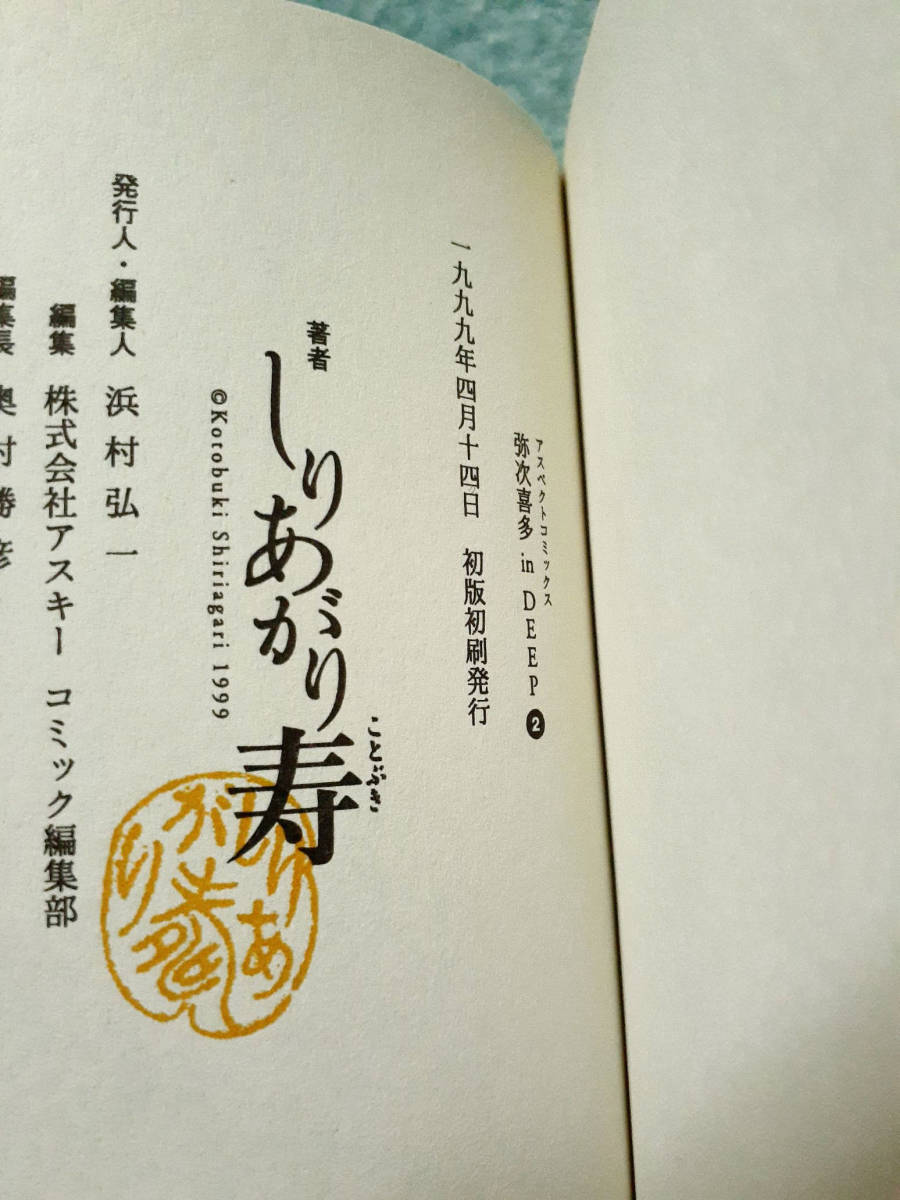 アスペクトコミックス
弥次喜多 in DEEP ❷
一九九九年四月十四日 初版初刷発行
著者 しりあがり寿
ことぶき
©Kotobuki Shiriagari 1999
発行人・編集人 浜村弘一
編集 株式会社アスキー コミック編集部
編集長 奥村勝彦
しりあがり寿